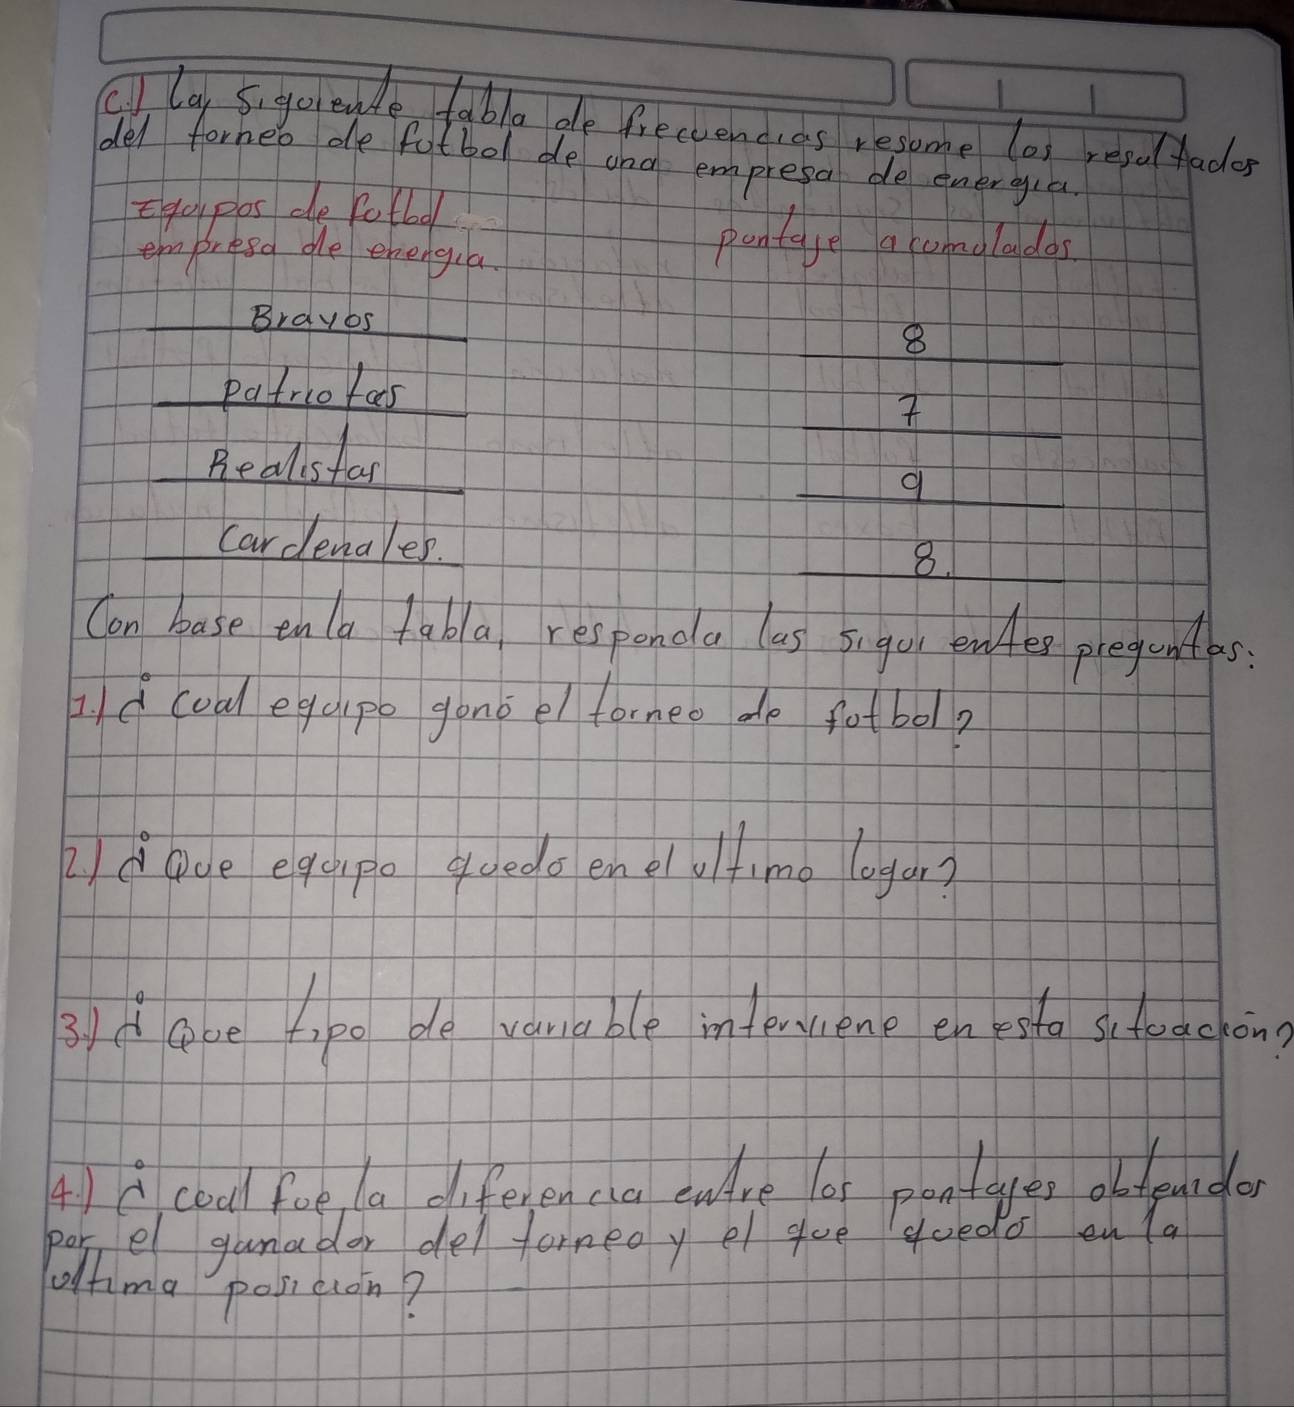 C.) La siguiente tabla de frecuencias resume los resultados
del torneo de futbol de una empresa de energia.
Equipos de futbol
empresa de energia.
puntaje acumulados.
Bravos 8
Patriotas 7
Realistas 9
Cardenales. 8.
Con base en la tabla, responda las siguientes preguntas:
1.) ¿Cual equipo gano el torneo de futbol?
2.) ¿Que equipo quedo en el ultimo lugar?
3.) ¿Que tipo de variable interviene en esta situación?
4.) ¿cual fue la diferencia entre los puntajes obtenidos
por el ganador del torneo y el que quedó en la
ultima posición?